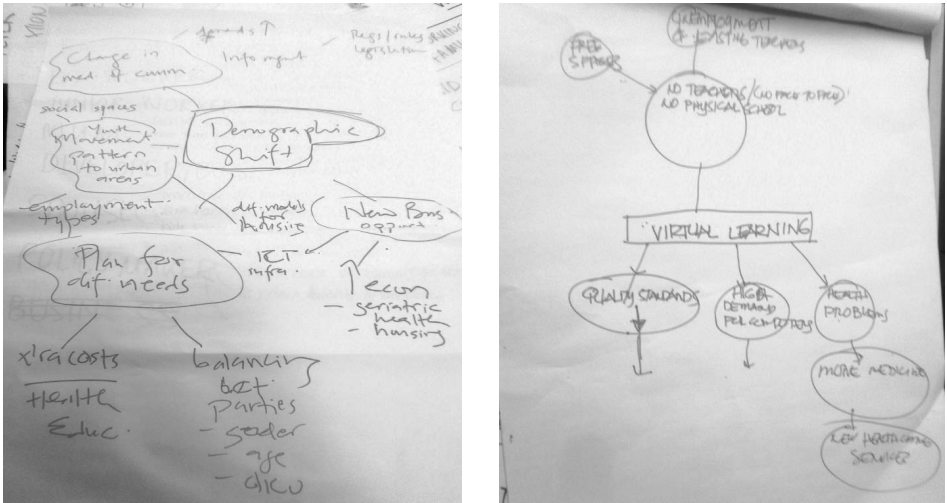 Change in
med of comm
spreads ↑
Infomgmt
Regs/rules
legislation
social spaces
Youth
Movement
pattern
to urban
areas
Demographic
Shift
- employment
types
dif. models
for
housing
New Bus
opport.
Plan for
dif. needs
ICT
infra.
↑ econ
- geriatric
health
- housing
x'tra costs
Health
Educ.
balancing
bet.
parties
- gender
- age
UNEMPLOYMENT
OF EXISTING TEACHERS
FREE
SPACES
NO TEACHERS/(NO FACE TO FACE)
NO PHYSICAL SCHOOL
VIRTUAL LEARNING
QUALITY STANDARDS
HIGH
DEMAND
FOR COMPUTERS
HEALTH
PROBLEMS
MORE MEDICINE
NEW HEALTHCARE
SERVICES